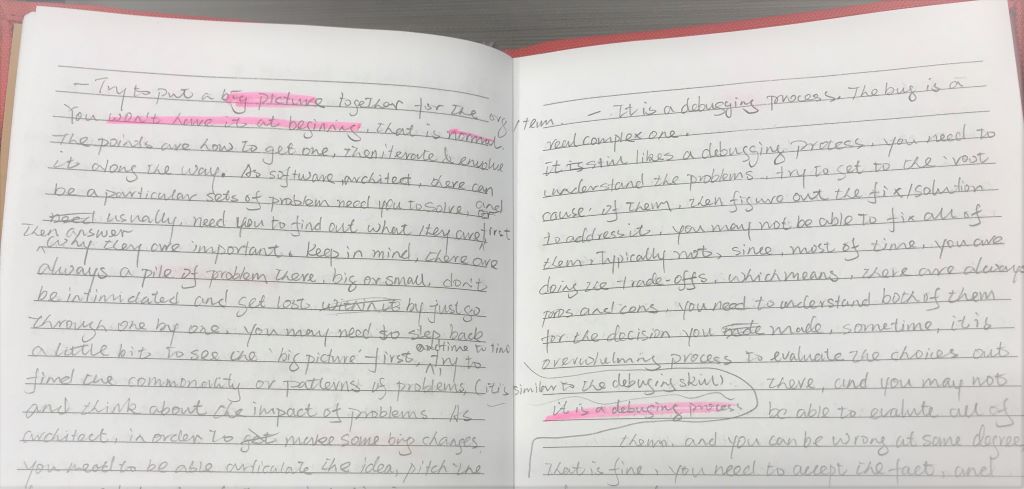 - Try to put a big picture together for the org/team.
You won't have it at beginning, that is normal.
The points are how to get one, then iterate & envolve
it along the way. As software architect, there can
be a particular sets of problem need you to solve, and
need usually, need you to find out what they are first
Then answer
why they are important. Keep in mind, there are
always a pile of problem there, big or small, don't
be intimidated and get lost within it by just go
through one by one, you may need to step back
a little bit to see the 'big picture' first, and time to find Try to
find the commonality or patterns of problems, (it is similar to the debuging skill)
and think about the impact of problems. As
architect, in order to get make some big changes
you need to be able articulate the idea, pitch the
- It is a debugging process. The bug is a
real complex one.
It is still likes a debugging process, you need to
understand the problems, try to get to the root
cause of them, then figure out the fix/solution
to address it, you may not be able to fix all of
them, typically not, since, most of time, you are
doing the trade-offs, which means, there are always
pros and cons, you need to understand both of them
for the decision you made, sometime, it is
overwhelming process to evaluate the choices out
there, and you may not
it is a debuging process
be able to evalute all of
them. and you can be wrong at some degree
That is fine, you need to accept the fact, and